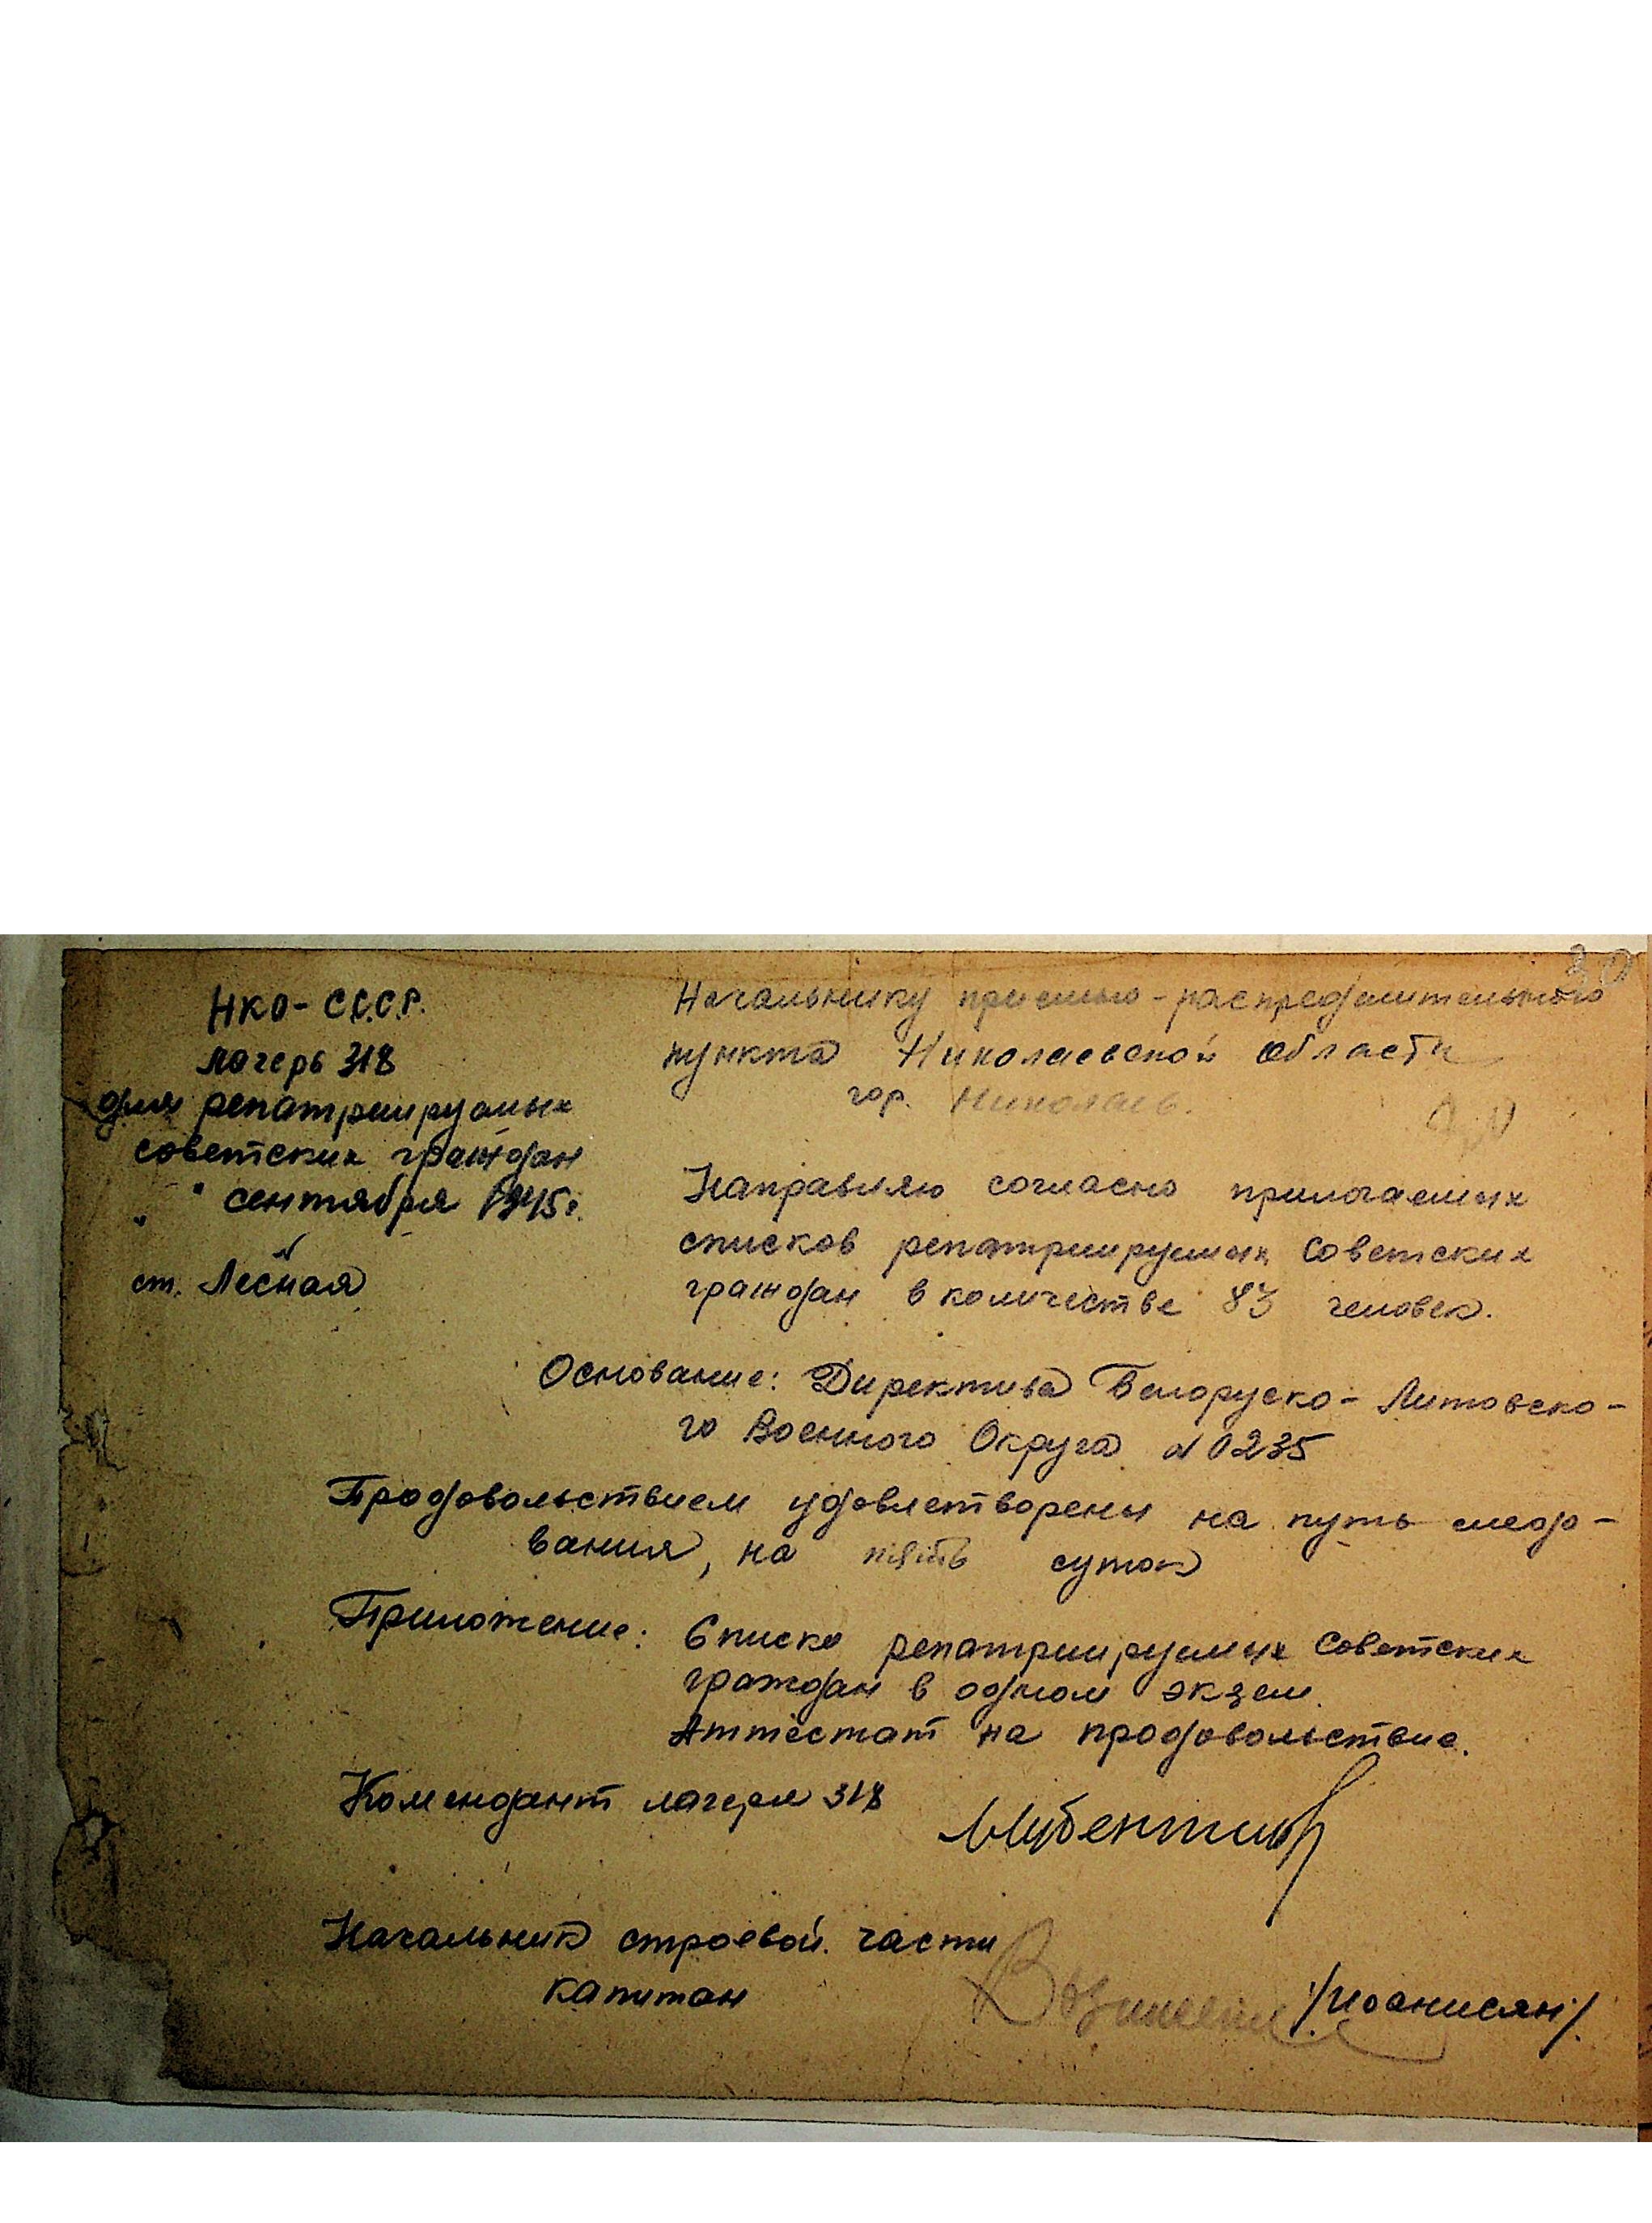 НКО - С.С.С.Р.
лагерь 318
для репатриируемых
советских граждан
" " сентября 1945 г.
ст. Лесная
30
Начальнику приемно-распределительного
пункта Николаевской области
гор. Николаев.
Направляю согласно прилогаемых
списков репатриируемых Советских
граждан в количестве 83 человек.
Основание: Директива Белоруско-Литовско-
го Военного Округа № 0235
Продовольствием удовлетворены на путь следо-
вания, на пять суток
Приложение: Списко репатриируемых Советских
граждан в одном экзем.
Аттестат на продовольствие.
Комендант лагеря 318
Начальник строевой части
капитан /Иоанисян/.